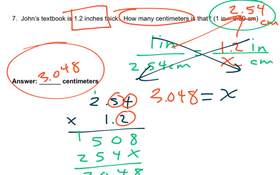 2.54 cm
7. John's textbook is 1.2 inches thick. How many centimeters is that? (1 in = 2.80 cm)
1 in / 2.54 cm = 1.2 in / x cm
3.048
Answer: ____ centimeters
3.048 = x
2.54
x 1.2
1508
254x
3048